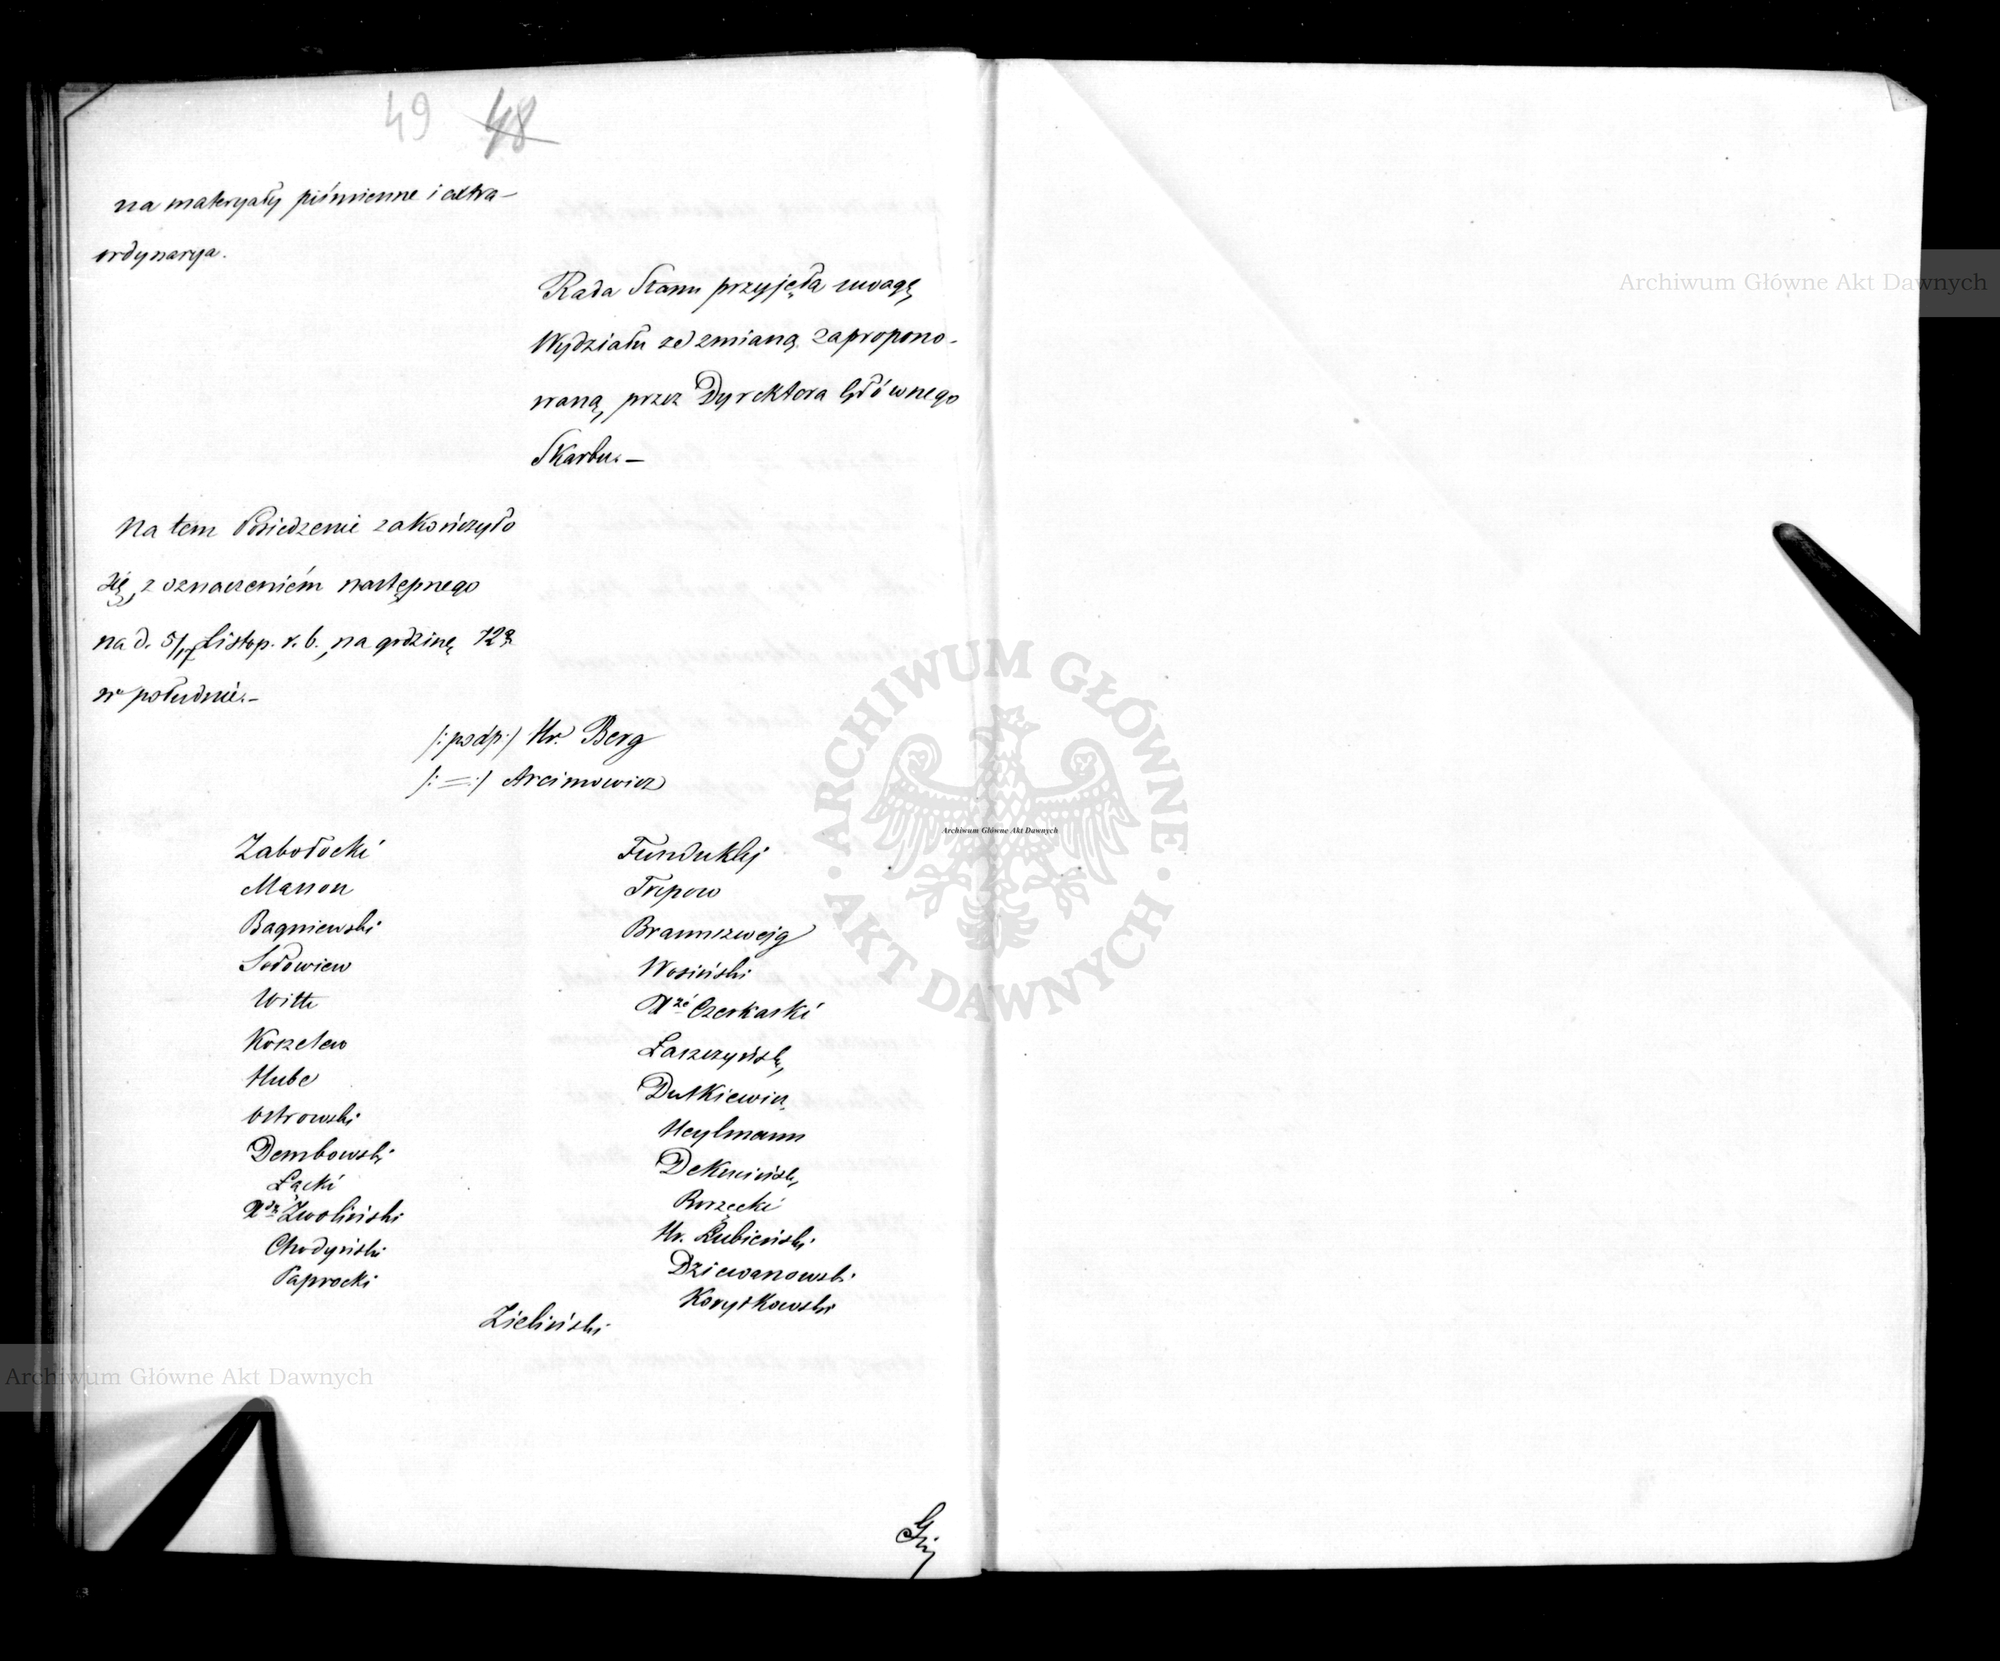 49 48
na materyały piśmienne i extra-
ordynarya.
Rada Stanu przyjęła uwagę
Wydziału ze zmianą zapropono-
waną, przez Dyrektora Głównego
Skarbu.—
Na tem Posiedzenie zakończyło
się, z oznaczeniem następnego
na d. 5/17 Listop. r. b., na godzinę 12ą
w południe.—
/:podp:/ Hr. Berg
/: = :/ Arcimowicz
Zabołocki
Manon
Bagniewski
Sołowiew
Witte
Koszelew
Hube
Ostrowski
Dembowski
Łącki
Xdz Zwoliński
Chodyński
Paprocki
Funduklej
Trepow
Braunszwejg
Wosiński
Xże Czerkaski
Łaszczyński
Dutkiewicz
Heylmann
Dekuciński
Rzęcki
Hr. Łubieński
Dziewanowski
Korytkowski
Zieliński
Archiwum Główne Akt Dawnych
ARCHIWUM GŁÓWNE AKT DAWNYCH
Archiwum Główne Akt Dawnych
Archiwum Główne Akt Dawnych